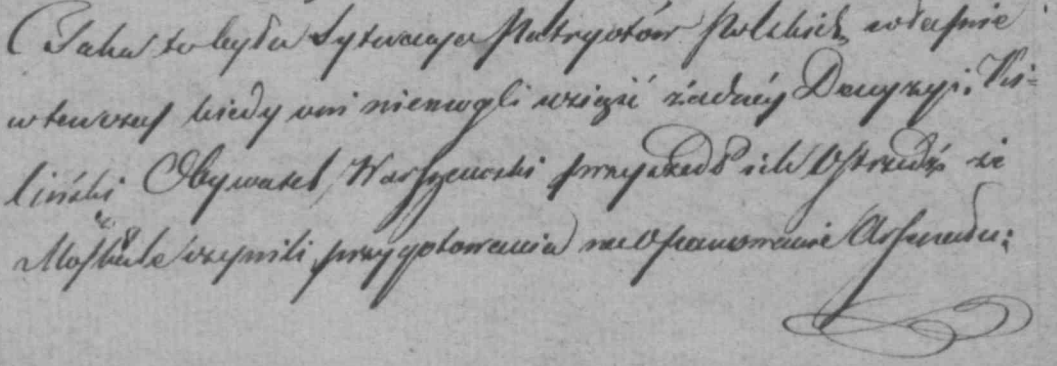 (Taka to była Sytuacya Patryotów Polskich, właśnie
wtenczas kiedy oni niemogli wziąść żadnéy Decyzyi. Ki-
liński Obywatel Warszewski przyszedł ich Ostrzedz że
Moskale uczynili przygotowania na Opanowanie Arsenału: